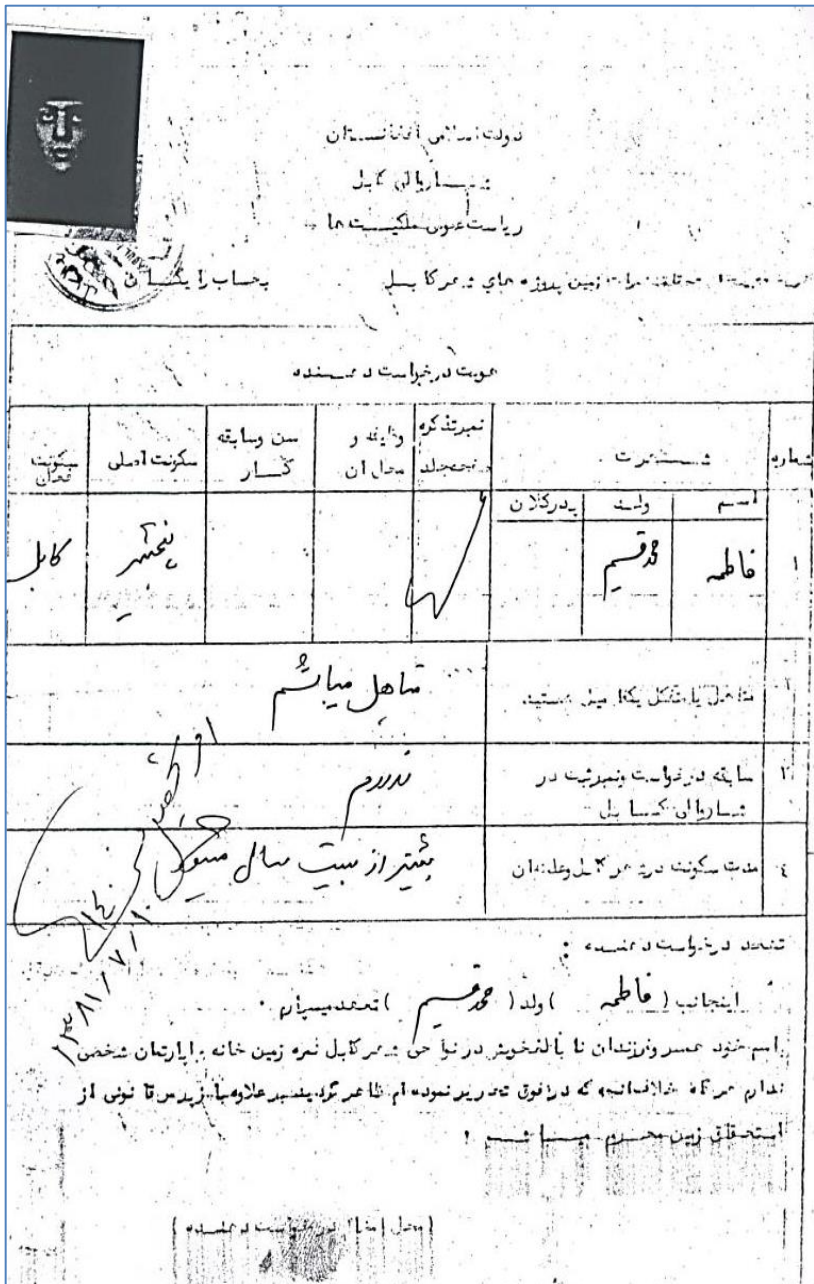 دولت اسلامی افغانستان
شاروالی کابل
ریاست عمومی ملکیت ها
زمین پروژه های شهر کابل بحساب رایگان
هویت درخواست دهنده
شماره شهرت نمبر تذکره وظیفه و محل آن سن وسابقه کار سکونت اصلی سکونت فعلی
اسم ولد پدرکلان
۱ فاطمه محمد قسیم پنجشیر کابل
متاهل یا متکفل یکفامیل هستید متاهل میباشم
۳ سابقه درخواست ونمبر ثبت در شاروالی کابل ندارم
۴ مدت سکونت در شهر کابل بیشتر از بیست سال میشود
تعهد درخواست دهنده :
اینجانب ( فاطمه ) ولد ( محمد قسیم ) تعهد میسپارم .
اسم خود همسر وفرزندان نا بالغ خویش در نواحی شهر کابل نمره زمین خانه و اپارتمان شخصی
ندارم هرگاه خلاف آنچه که در فوق تحریر نموده ام ظاهر گردید علاوه از
استحقاق زمین محروم میباشم .
۱۳۸۱/۷/۱۰
( محل امضا درخواست دهنده )